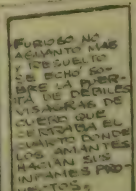 FURIOSO NO
AGUANTO MAS
Y RESUELTO
SE ECHO SO-
BRE LA PUER-
TA DE DEBILES
VISAGRAS DE
CUERO QUE
CERRABA EL
CUARTO DONDE
LOS AMANTES
HACIAN SUS
INFAMES PRO-
TOS.